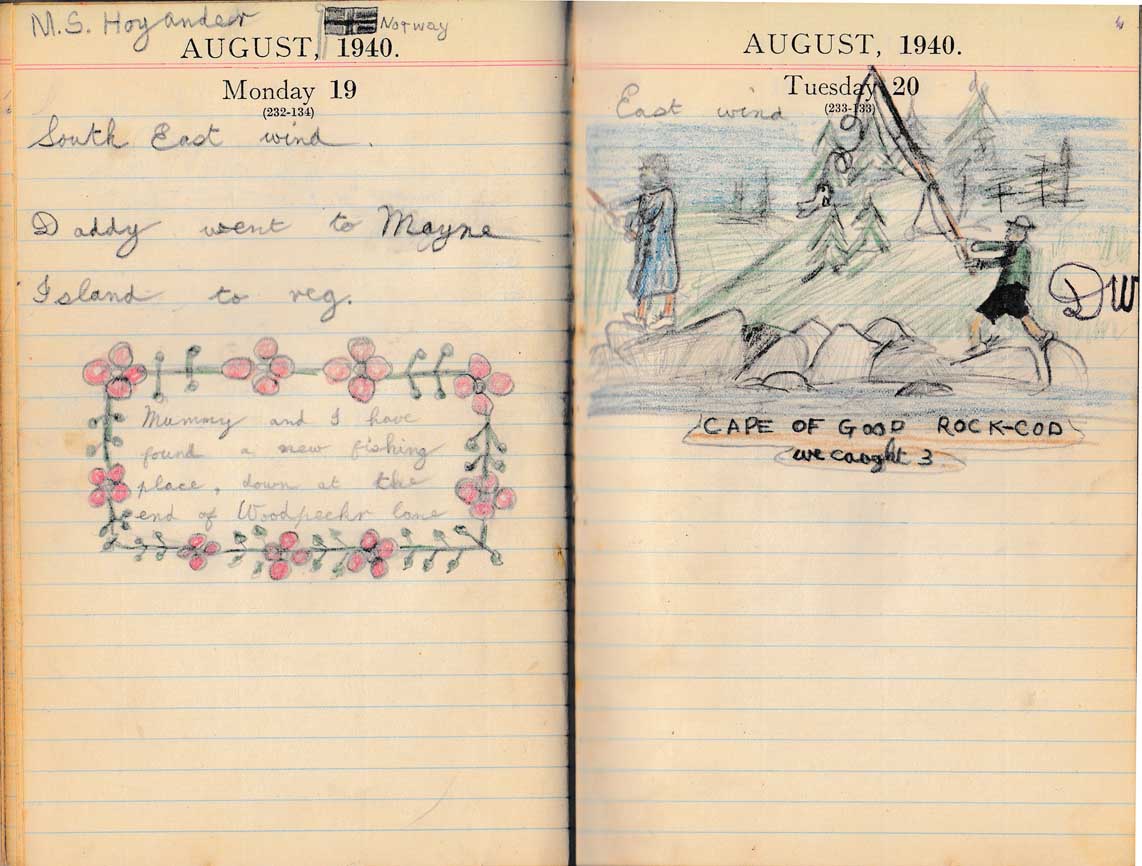 M.S. Hoyander Norway
AUGUST, 1940.
Monday 19
(232-134)
South East wind.
Daddy went to Mayne
Island to reg.
Mummy and I have
found a new fishing
place, down at the
end of Woodpeckr lane
AUGUST, 1940.
Tuesday 20
(233-133)
East wind
DW
CAPE OF GOOD ROCK-COD
we caught 3